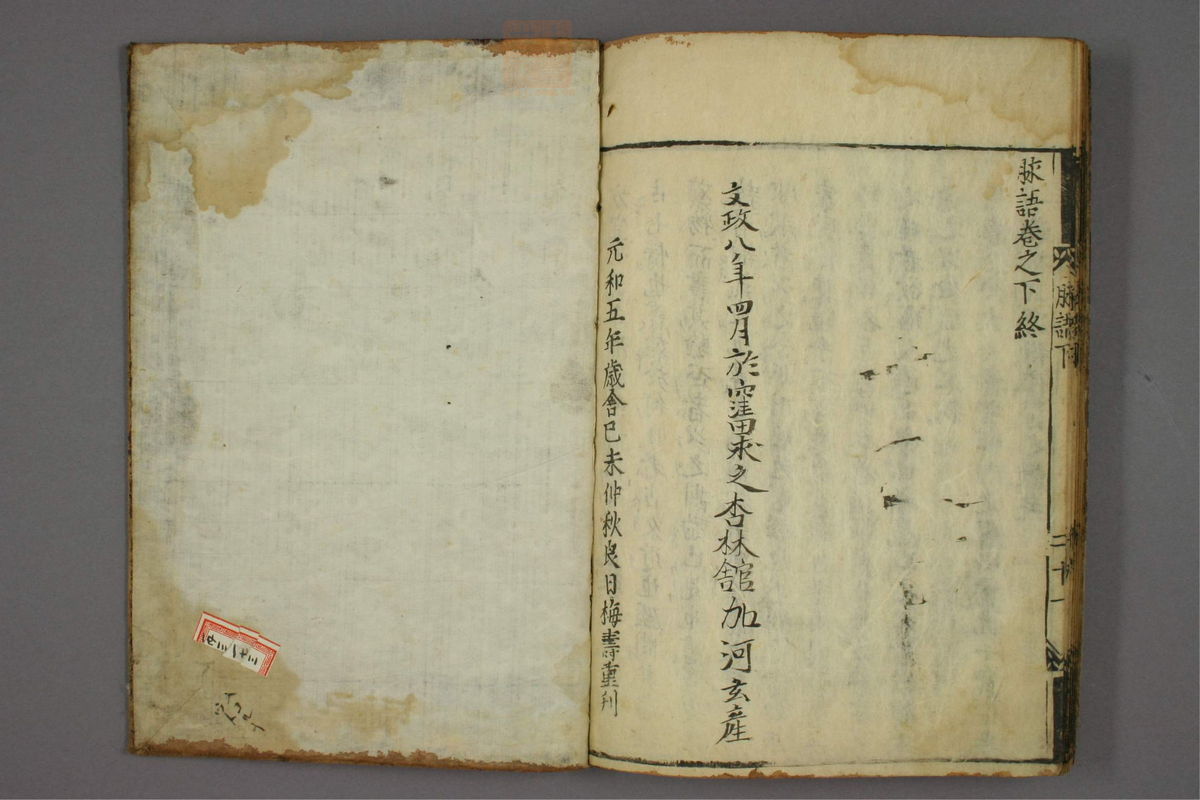 脉語卷之下終
文政八年四月於窪田求之杏林舘加河玄産
元和五年歳舍己未仲秋良日梅壽重刊
脉語下
二十一